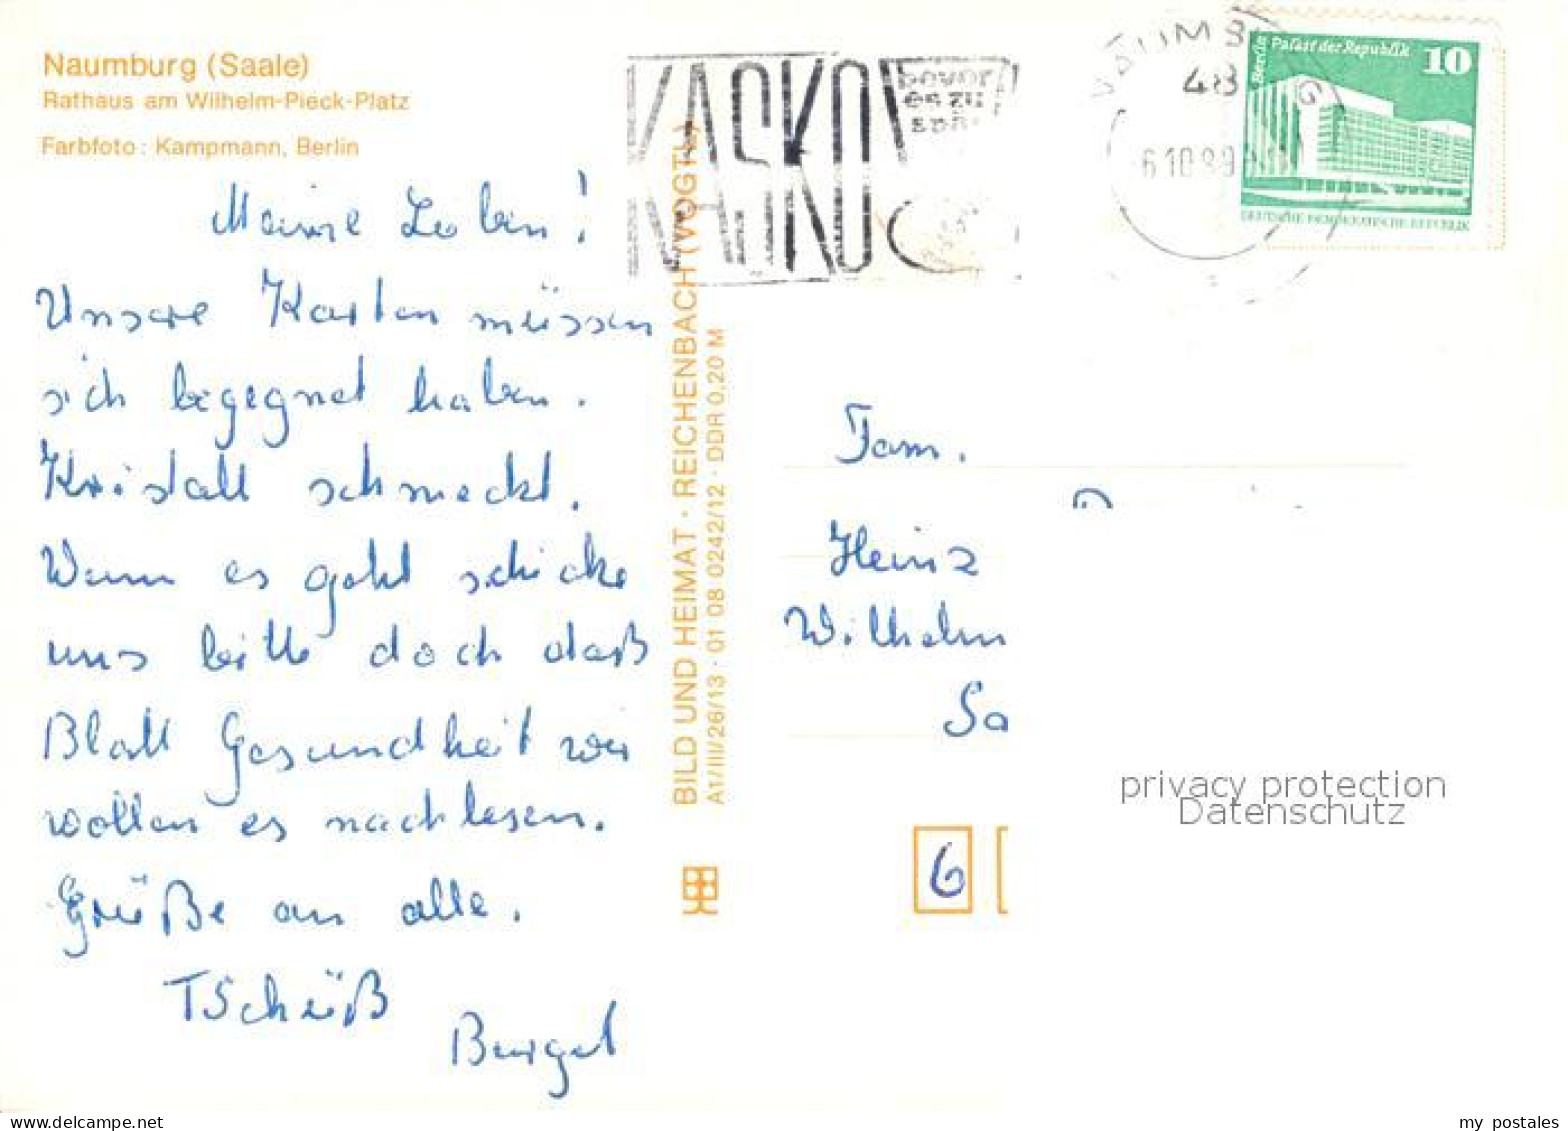 Naumburg (Saale)
Rathaus am Wilhelm-Pieck-Platz
Farbfoto: Kampmann, Berlin
Meine Lieben!
Unsere Karten müssen
sich begegnet haben.
Kristall schmeckt.
Wenn es geht schicke
uns bitte doch daß
Blatt Gesundheit wir
wollen es nachlesen.
Grüße an alle.
TSchüß
Burgel
BILD UND HEIMAT · REICHENBACH (VOGTL)
A1/III/26/13 · 01 08 0242/12 · DDR 0,20 M
KASKO
bevor
es zu
spät
NAUMBURG
48
6.10.89
Berlin
Palast der Republik
10
DEUTSCHE DEMOKRATISCHE REPUBLIK
Fam.
Heinz
Wilhelm
Sa
privacy protection
Datenschutz
6
my postales